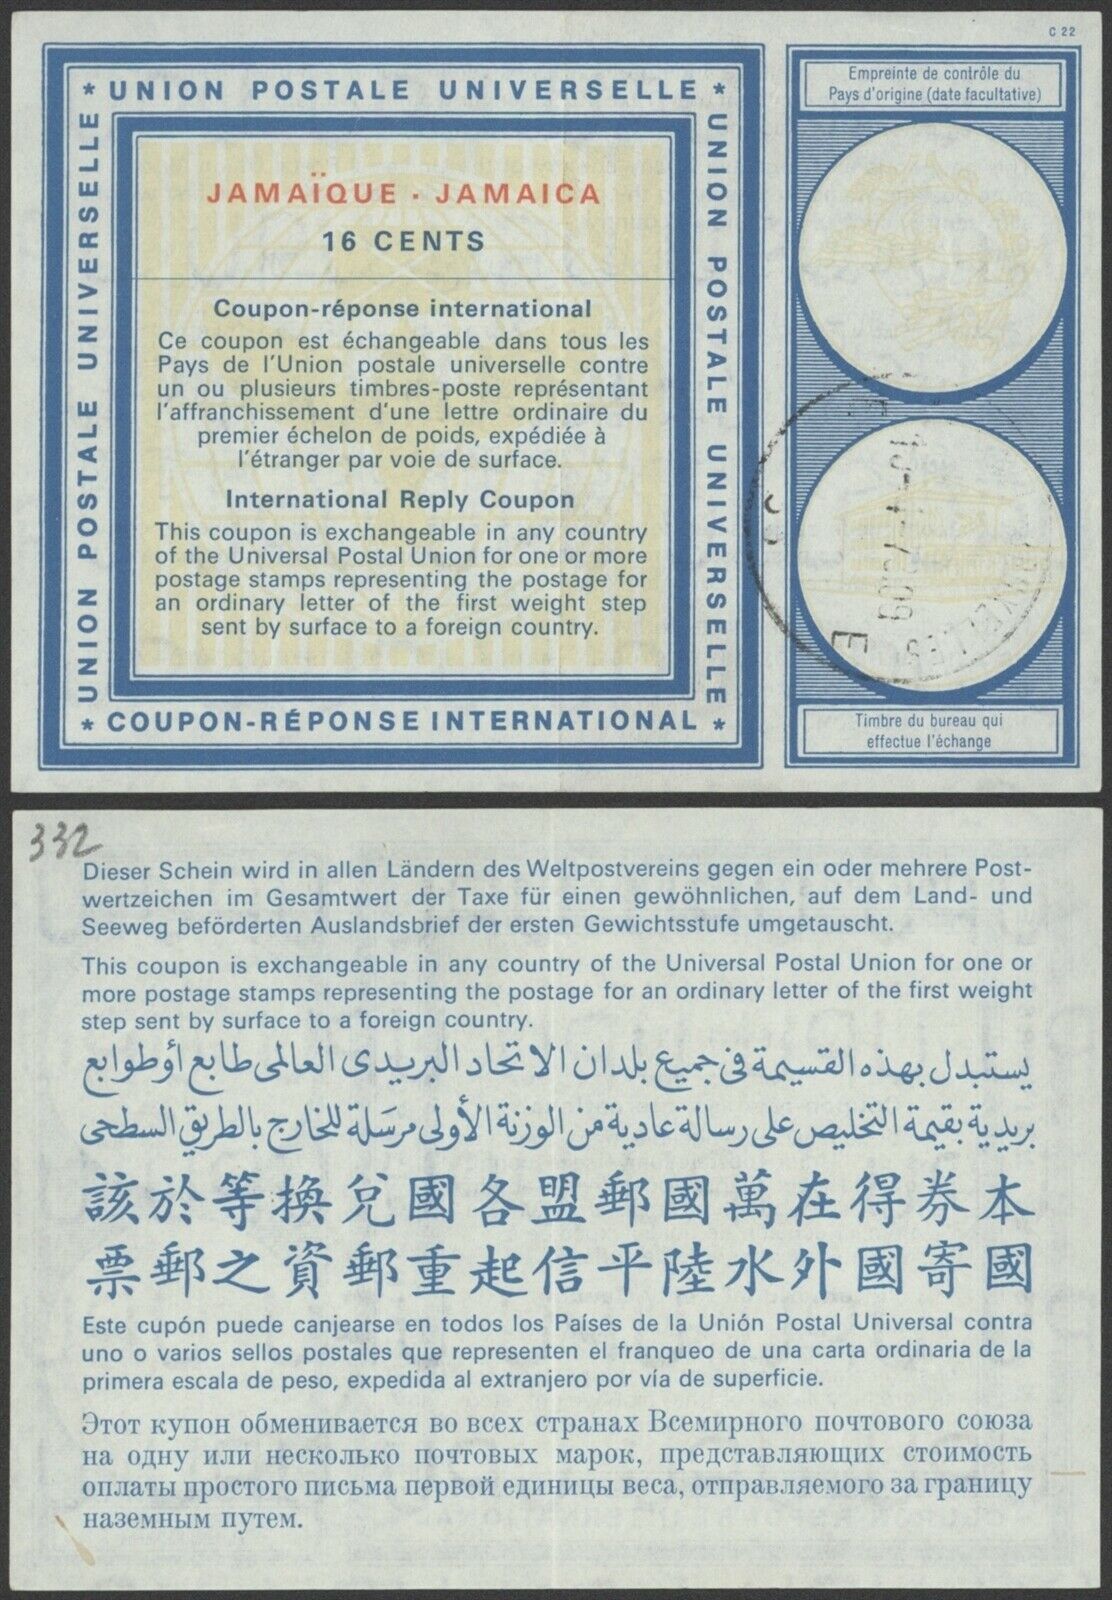 C 22
* UNION POSTALE UNIVERSELLE *
UNION POSTALE UNIVERSELLE
UNION POSTALE UNIVERSELLE
JAMAÏQUE · JAMAICA
16 CENTS
Coupon-réponse international
Ce coupon est échangeable dans tous les
Pays de l'Union postale universelle contre
un ou plusieurs timbres-poste représentant
l'affranchissement d'une lettre ordinaire du
premier échelon de poids, expédiée à
l'étranger par voie de surface.
International Reply Coupon
This coupon is exchangeable in any country
of the Universal Postal Union for one or more
postage stamps representing the postage for
an ordinary letter of the first weight step
sent by surface to a foreign country.
* COUPON-RÉPONSE INTERNATIONAL *
Empreinte de contrôle du
Pays d'origine (date facultative)
E
Timbre du bureau qui
effectue l'échange
332
Dieser Schein wird in allen Ländern des Weltpostvereins gegen ein oder mehrere Post-
wertzeichen im Gesamtwert der Taxe für einen gewöhnlichen, auf dem Land- und
Seeweg beförderten Auslandsbrief der ersten Gewichtsstufe umgetauscht.
This coupon is exchangeable in any country of the Universal Postal Union for one or
more postage stamps representing the postage for an ordinary letter of the first weight
step sent by surface to a foreign country.
يستبدل بهذه القسيمة فى جميع بلدان الاتحاد البريدى العالمى طابع أوطوابع
بريدية بقيمة التخليص على رسالة عادية من الوزنة الأولى مرسَلة للخارج بالطريق السطحى
本券得在萬國郵盟各國兌換等於該
國寄國外水陸平信起重郵資之郵票
Este cupón puede canjearse en todos los Países de la Unión Postal Universal contra
uno o varios sellos postales que representen el franqueo de una carta ordinaria de la
primera escala de peso, expedida al extranjero por vía de superficie.
Этот купон обменивается во всех странах Всемирного почтового союза
на одну или несколько почтовых марок, представляющих стоимость
оплаты простого письма первой единицы веса, отправляемого за границу
наземным путем.